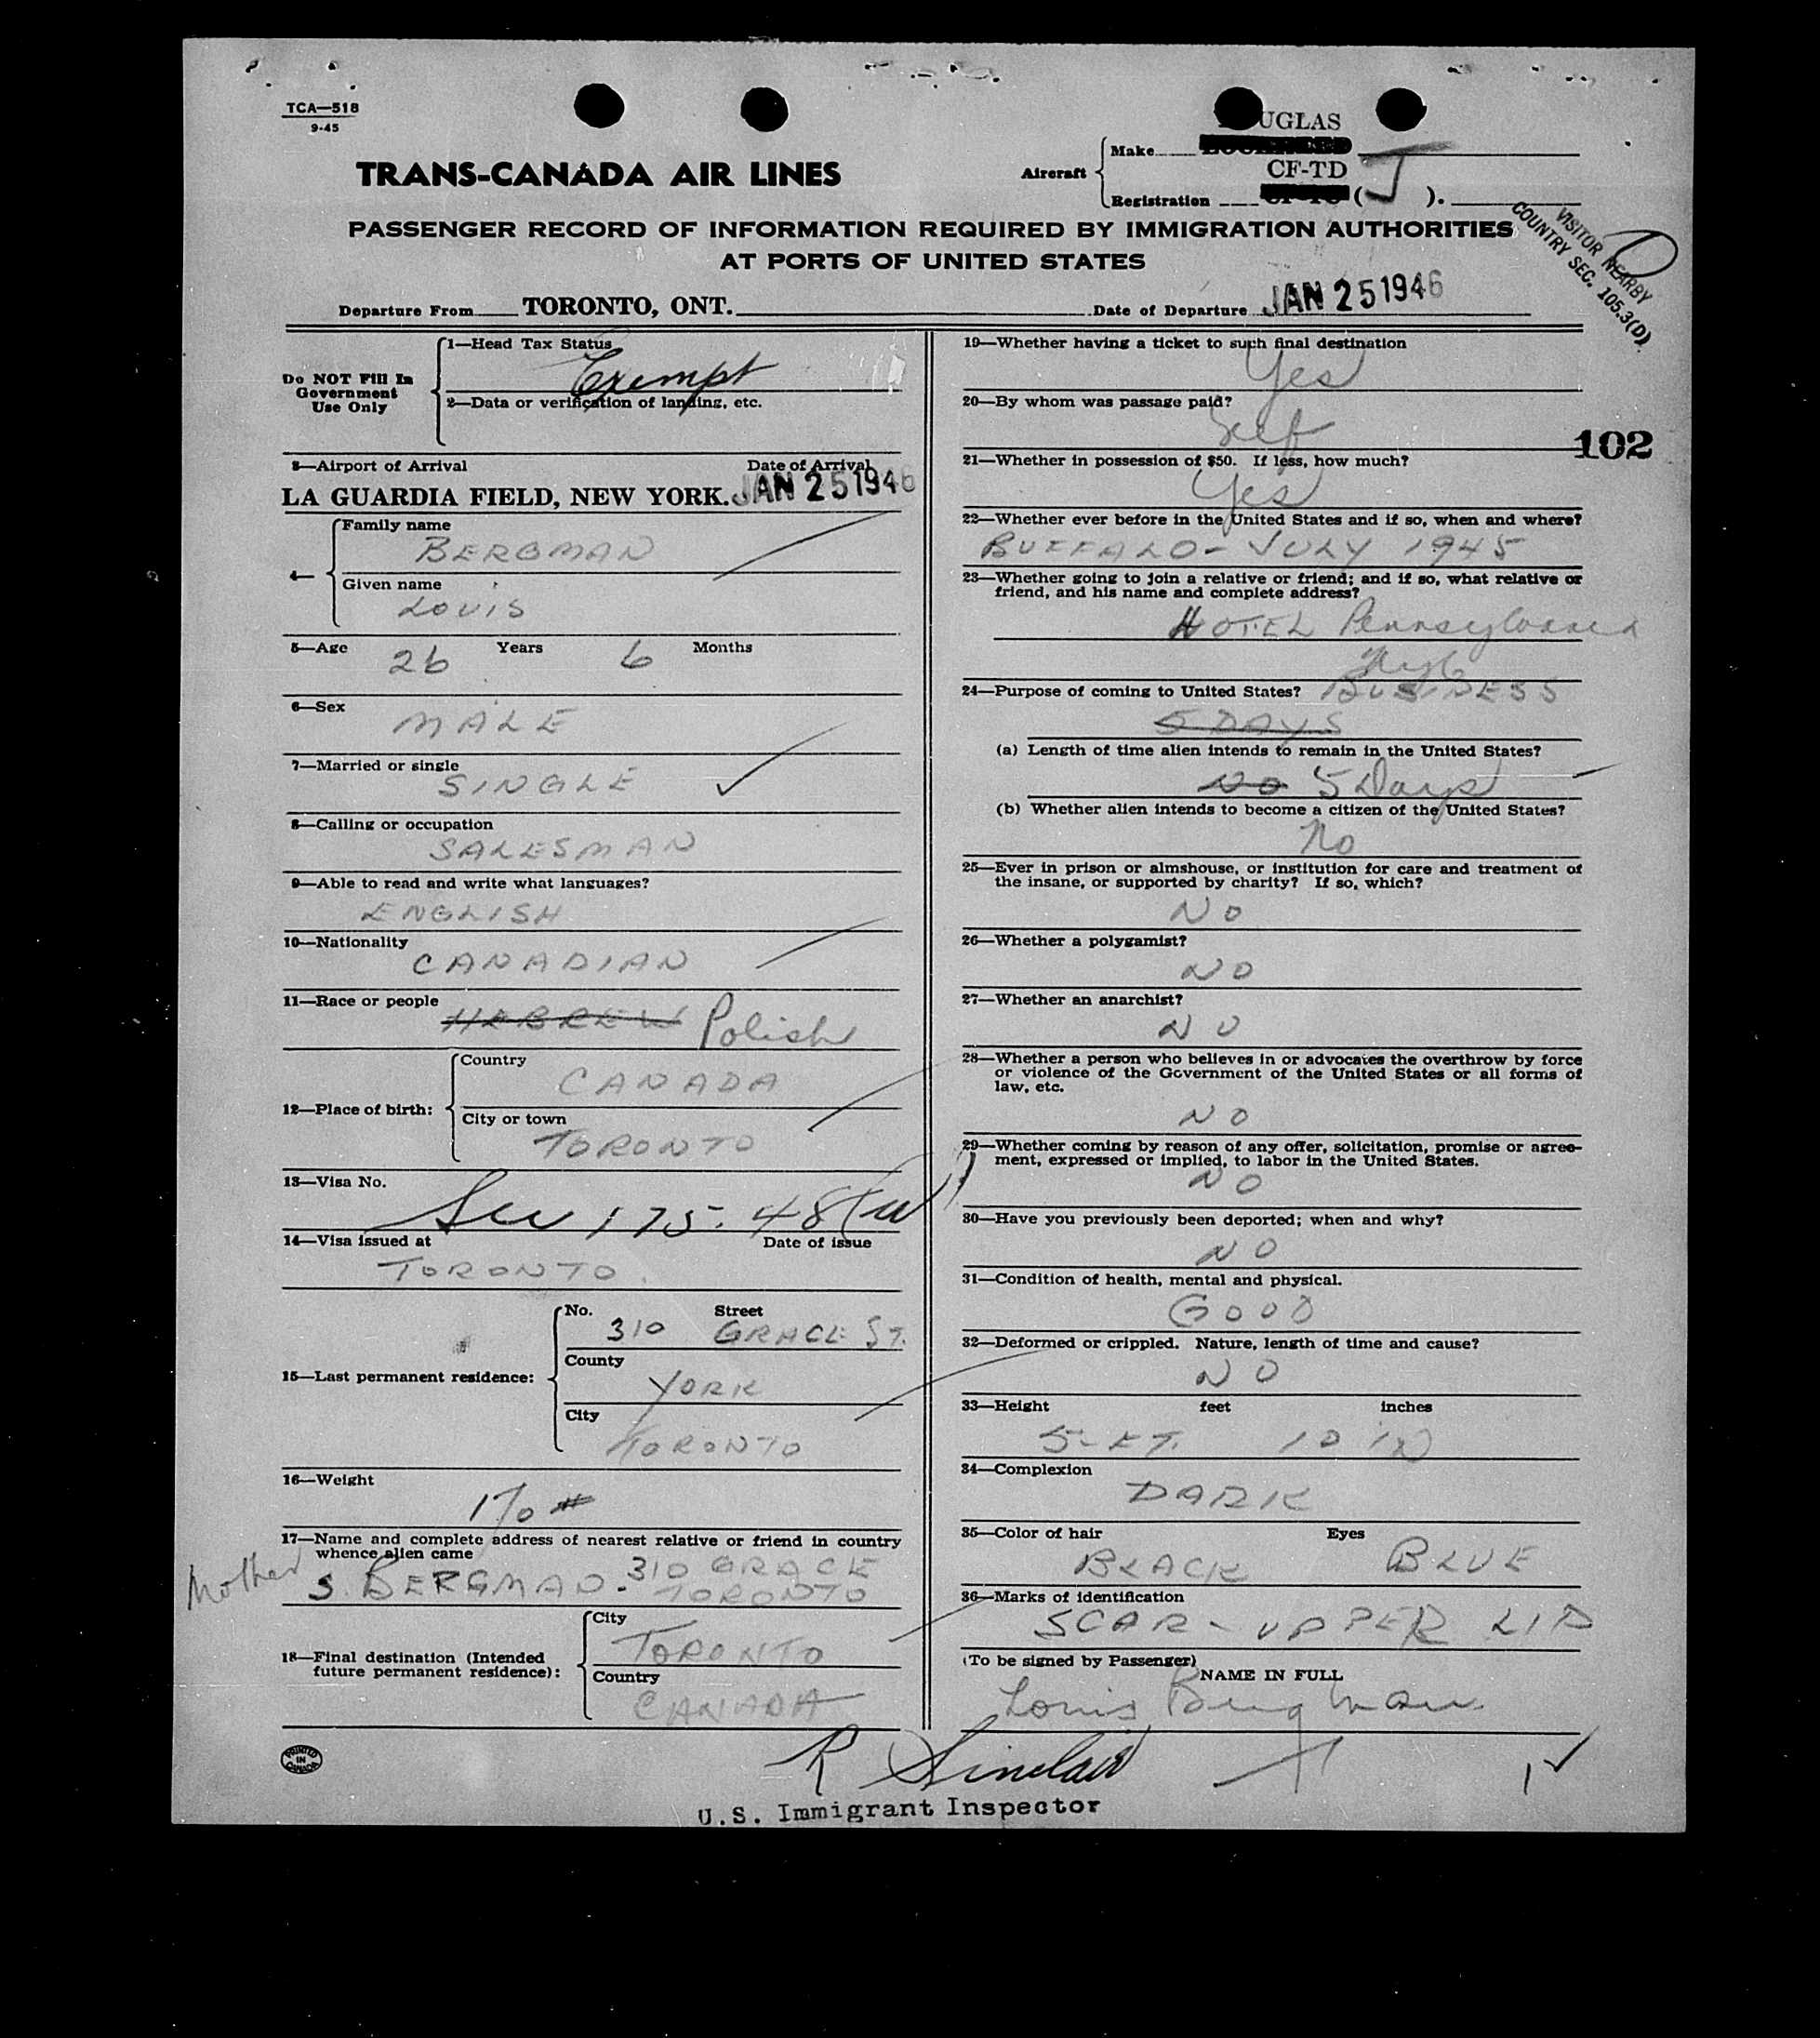 TCA—518
9-45
TRANS-CANADA AIR LINES
UGLAS
Aircraft
Make
CF-TD
Registration ( J ).
PASSENGER RECORD OF INFORMATION REQUIRED BY IMMIGRATION AUTHORITIES
AT PORTS OF UNITED STATES
VISITOR NEARBY
COUNTRY SEC. 105.3(D)
Departure From TORONTO, ONT. Date of Departure JAN 25 1946
Do NOT Fill In
Government
Use Only
1—Head Tax Status
Exempt
2—Data or verification of landing, etc.
3—Airport of Arrival Date of Arrival
LA GUARDIA FIELD, NEW YORK. JAN 25 1946
4—
Family name
BERGMAN
Given name
LOUIS
5—Age 26 Years 6 Months
6—Sex
MALE
7—Married or single
SINGLE
8—Calling or occupation
SALESMAN
9—Able to read and write what languages?
ENGLISH
10—Nationality
CANADIAN
11—Race or people
HEBREW Polish
12—Place of birth:
Country
CANADA
City or town
TORONTO
13—Visa No.
Sec 175.48(w)
14—Visa issued at Date of issue
TORONTO.
15—Last permanent residence:
No. Street
310 GRACE ST.
County
YORK
City
TORONTO
16—Weight
170 #
17—Name and complete address of nearest relative or friend in country
whence alien came
Mother S. BERGMAN - 310 GRACE
TORONTO
18—Final destination (Intended
future permanent residence):
City
TORONTO
Country
CANADA
19—Whether having a ticket to such final destination
Yes
20—By whom was passage paid?
Self
102
21—Whether in possession of $50. If less, how much?
Yes
22—Whether ever before in the United States and if so, when and where?
BUFFALO - JULY 1945
23—Whether going to join a relative or friend; and if so, what relative or
friend, and his name and complete address?
HOTEL Pennsylvania
NYC
24—Purpose of coming to United States? BUSINESS
5 DAYS
(a) Length of time alien intends to remain in the United States?
NO 5 Days
(b) Whether alien intends to become a citizen of the United States?
No
25—Ever in prison or almshouse, or institution for care and treatment of
the insane, or supported by charity? If so, which?
NO
26—Whether a polygamist?
NO
27—Whether an anarchist?
NO
28—Whether a person who believes in or advocates the overthrow by force
or violence of the Government of the United States or all forms of
law, etc.
NO
29—Whether coming by reason of any offer, solicitation, promise or agree-
ment, expressed or implied, to labor in the United States.
NO
30—Have you previously been deported; when and why?
NO
31—Condition of health, mental and physical.
GOOD
32—Deformed or crippled. Nature, length of time and cause?
NO
33—Height feet inches
5-FT. 10 IN
34—Complexion
DARK
35—Color of hair Eyes
BLACK BLUE
36—Marks of identification
SCAR - UPPER LIP
(To be signed by Passenger)
NAME IN FULL
Louis Bergman
PRINTED
IN
CANADA
R Sinclair
U.S. Immigrant Inspector